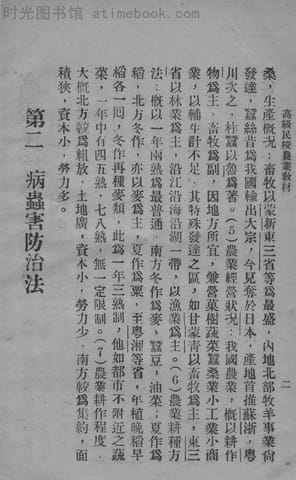 时光图书馆-atimebook.com
高級民校農業教材
二
桑，生產概况：畜牧以蒙新東三省等爲最盛，內地北部牧羊事業尚
發達，蠶絲昔爲我國輸出大宗，今見奪於日本，產地首推蘇浙，粤
川次之，柞蠶以魯爲著。（5）農業經營狀况：我國農業，概以耕作
物爲主，畜牧爲副，因地方所宜，兼營菓樹蔬菜蠶桑業小工業小商
業，以輔生計不足，其特殊發達之區，如甘蒙青以畜牧爲主，東三
省以林業爲主，沿江沿海沿湖一帶，以漁業爲主。（6）農業耕種方
法：概以一年兩熟爲最普通，南方冬作爲麥，蠶豆，油菜；夏作爲
稻，北方冬作，亦以麥爲主，夏作爲粟，至粤湘等省，年植晚稻早
稻各一囘，冬作再種麥類，此爲一年三熟制，他如都市不附近之蔬
菜，一年中有四五熟，七八熟，無一定限制。（7）農業耕作程度：
大概北方較爲粗放，土地廣，資本小，勞力少。南方較爲集約，面
積狹，資本小，勞力多。
第二　病蟲害防治法